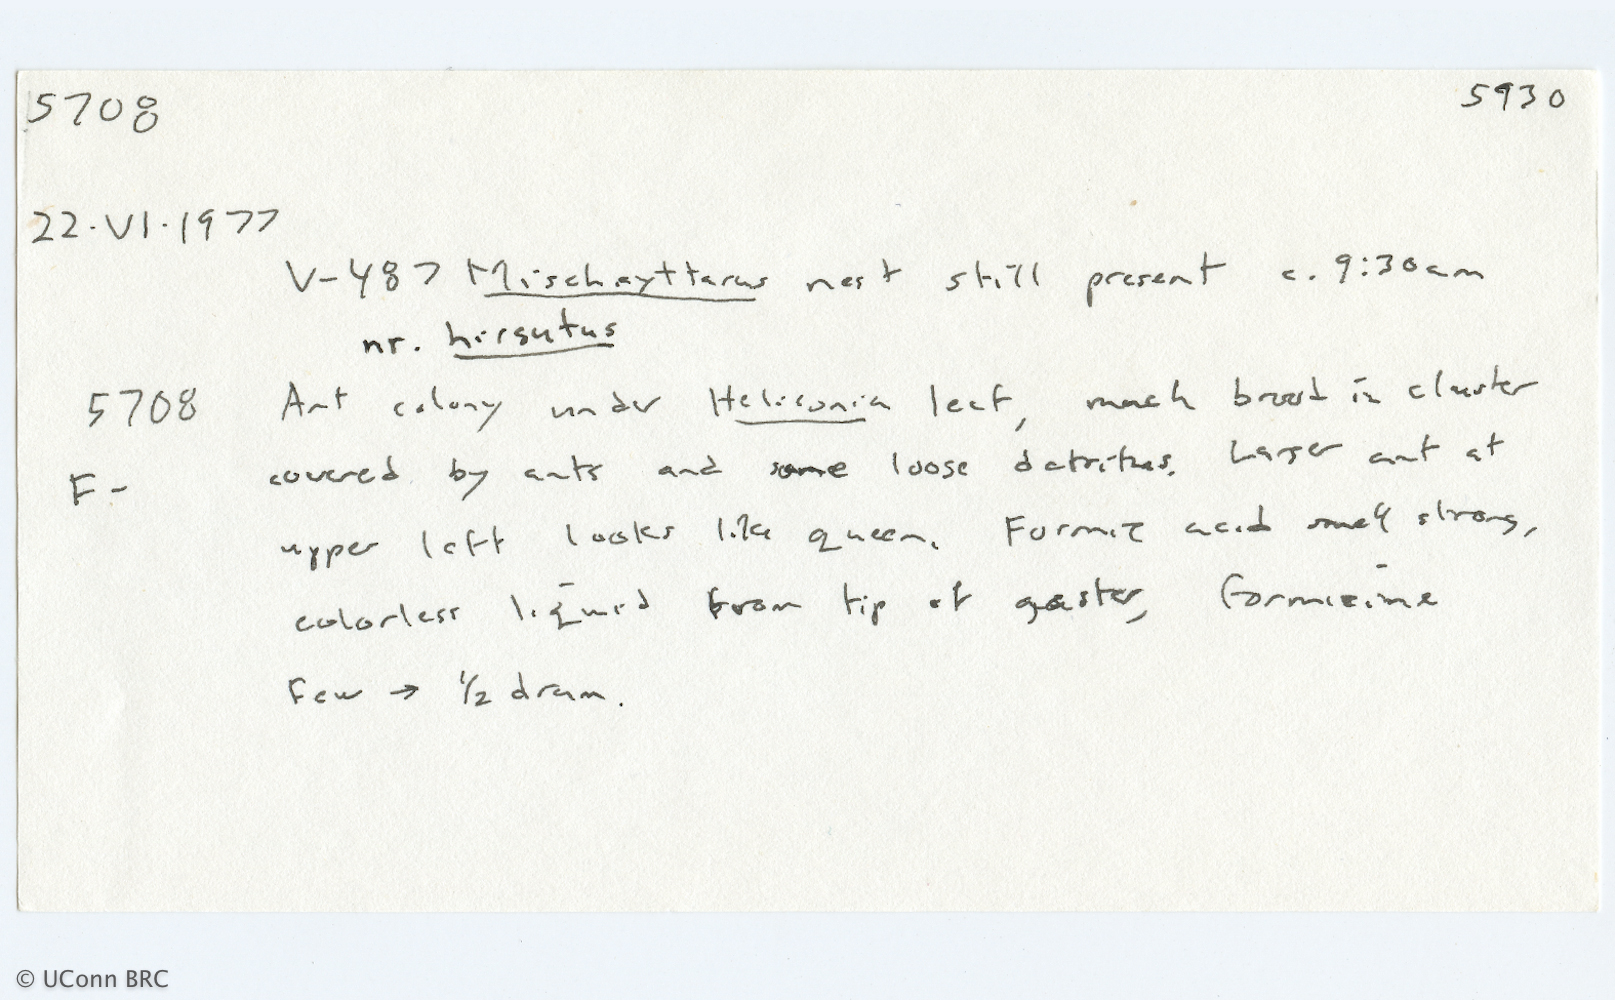 5708 5930
22·VI·1977
V-487 Mischoyttarus nest still present c. 9:30am
nr. hirsutus
5708 Ant colony under Heliconia leaf, much brood in cluster
F- covered by ants and some loose detritus. Larger ant at
upper left looks like queen. Formic acid smell strong,
colorless liquid from tip of gaster, formicine
Few → 1/2 dram.
© UConn BRC